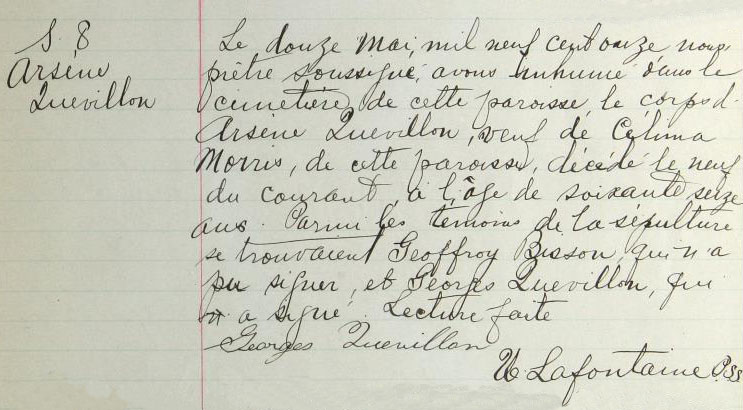 S. 8
Arsène
Quevillon
Le douze Mai, mil neuf cent onze nous
prêtre soussigné, avons inhumé dans le
cimetière, de cette paroisse, le corps d'
Arsène Quevillon, veuf de Célima
Morris, de cette paroisse, décédé le neuf
du courant, à l'âge de soixante seize
ans. Parmi les témoins de la sépulture
se trouvaient Geoffroy Bisson, qui n'a
pu signer, et Georges Quevillon, qui
a signé. Lecture faite
Georges Quevillon
Lafontaine Pss